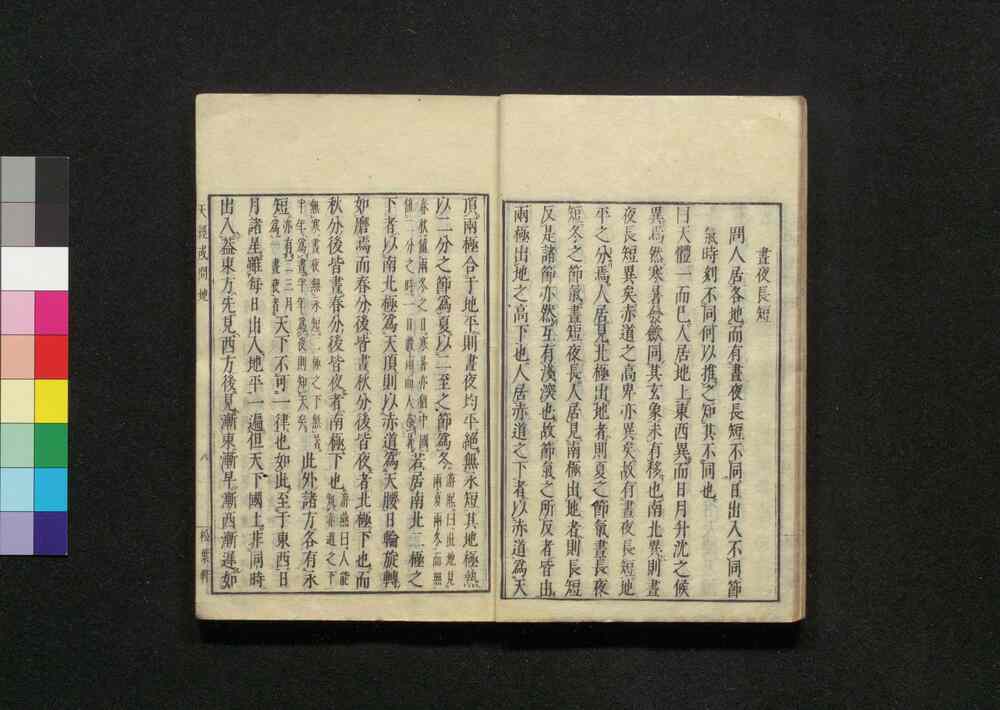 晝夜長短
問人居各地而有晝夜長短不同日出入不同節
氣時刻不同何以推之知其不同也
曰天體一而已人居地上東西異而日月升沈之候
異焉然寒暑發歛同其玄象未有移也南北異則晝
夜長短異矣赤道之高卑亦異矣故有晝夜長短地
平之分焉人居見北極出地者則夏之節氣晝長夜
短冬之節氣晝短夜長人居見南極出地者則長短
反是諸節亦然互有淺深也故節氣之所反者皆由
兩極出地之高下也人居赤道之下者以赤道爲天
頂兩極合于地平則晝夜均平絕無永短其地極熱
以二分之節爲夏以二至之節爲冬游熙曰此地見
兩夏兩冬而無
春秋值兩冬之日寒暑亦猶中國
值二分之時一日若居南北二極之
下者以南北極爲天頂則以赤道爲天腰日輪旋轉
如磨焉而春分後皆晝秋分後皆夜者北極下也而
秋分後皆晝春分後皆夜者南極下也游熙曰人能
知赤道之下
無寒暑晝夜無永短二極之下無
半年爲晝半年爲夜則知天矣此外諸方各有永
短亦有二三月
爲一晝夜者天下不可一律也如此至于東西日
月諸星雖每日出入地平一遍但天下國土非同時
出入蓋東方先見西方後見漸東漸早漸西漸遲如
天經或問地
八
松葉軒